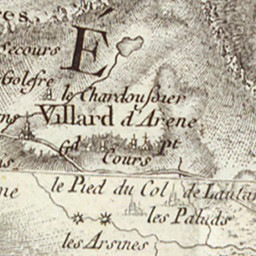 res.
É
ecours
Golefre
le Chardoussier
Villard d'Arene
ns
Gd pt
Cours
ns
le Pied du Col de Lautar
ne
les Paluds
les Arsines